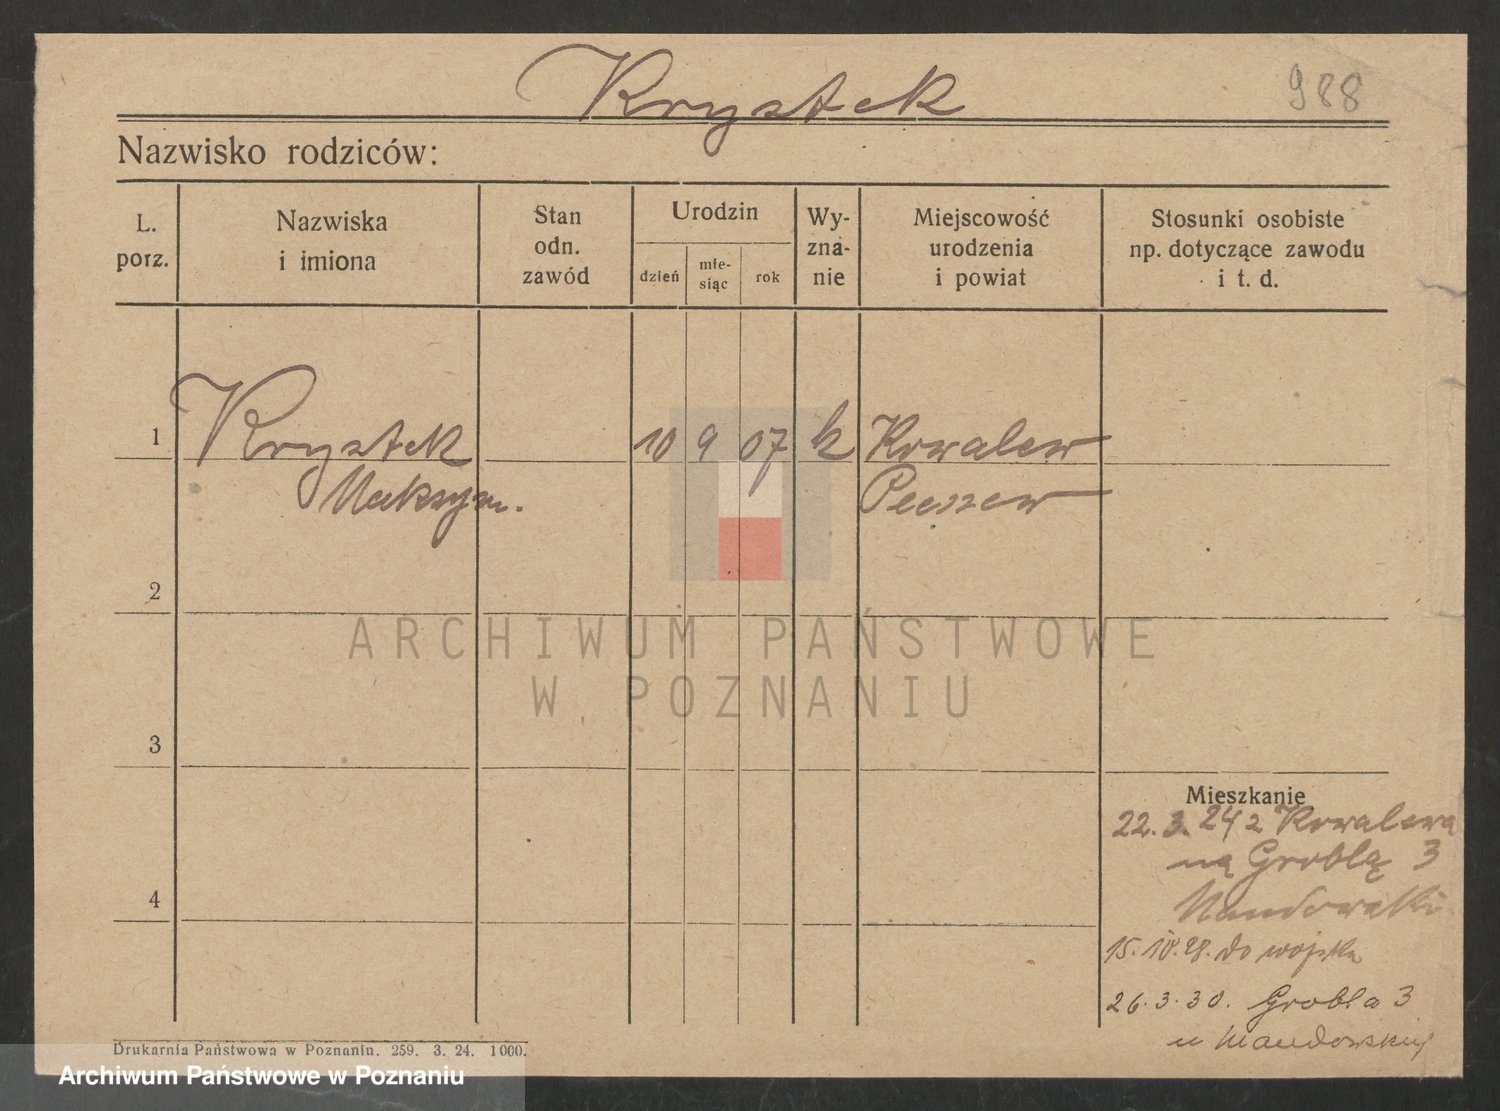 Krystek
988
Nazwisko rodziców:
L. porz.
Nazwiska i imiona
Stan odn. zawód
Urodzin
dzień
mie-siąc
rok
Wy-zna-nie
Miejscowość urodzenia i powiat
Stosunki osobiste np. dotyczące zawodu i t. d.
1 Krystek 10 9 07 k Kowalew
Maksym. Pleszew
2
ARCHIWUM PAŃSTWOWE
W POZNANIU
3
Mieszkanie
22.3.24 z Kowalewa
na Groblą 3
4
15.10.28. do wojska
26.3.30. Grobla 3
u Mandowskiej
Drukarnia Państwowa w Poznaniu. 259. 3. 24. 1000.
Archiwum Państwowe w Poznaniu